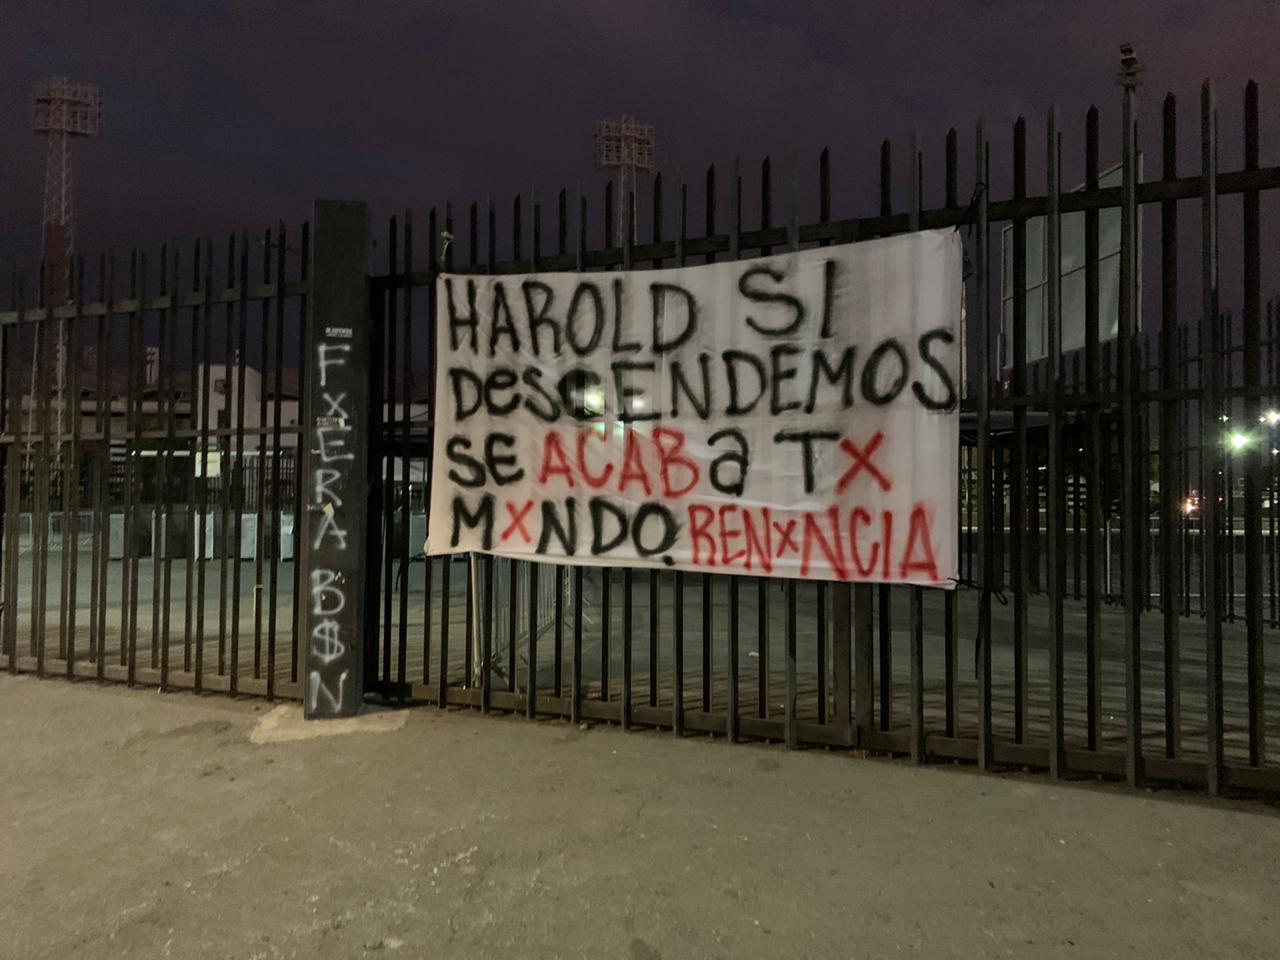 HAROLD SI
DesCENDEMOS
SE ACABa TX
MXNDO. RENXNCIA
FXERA B$N